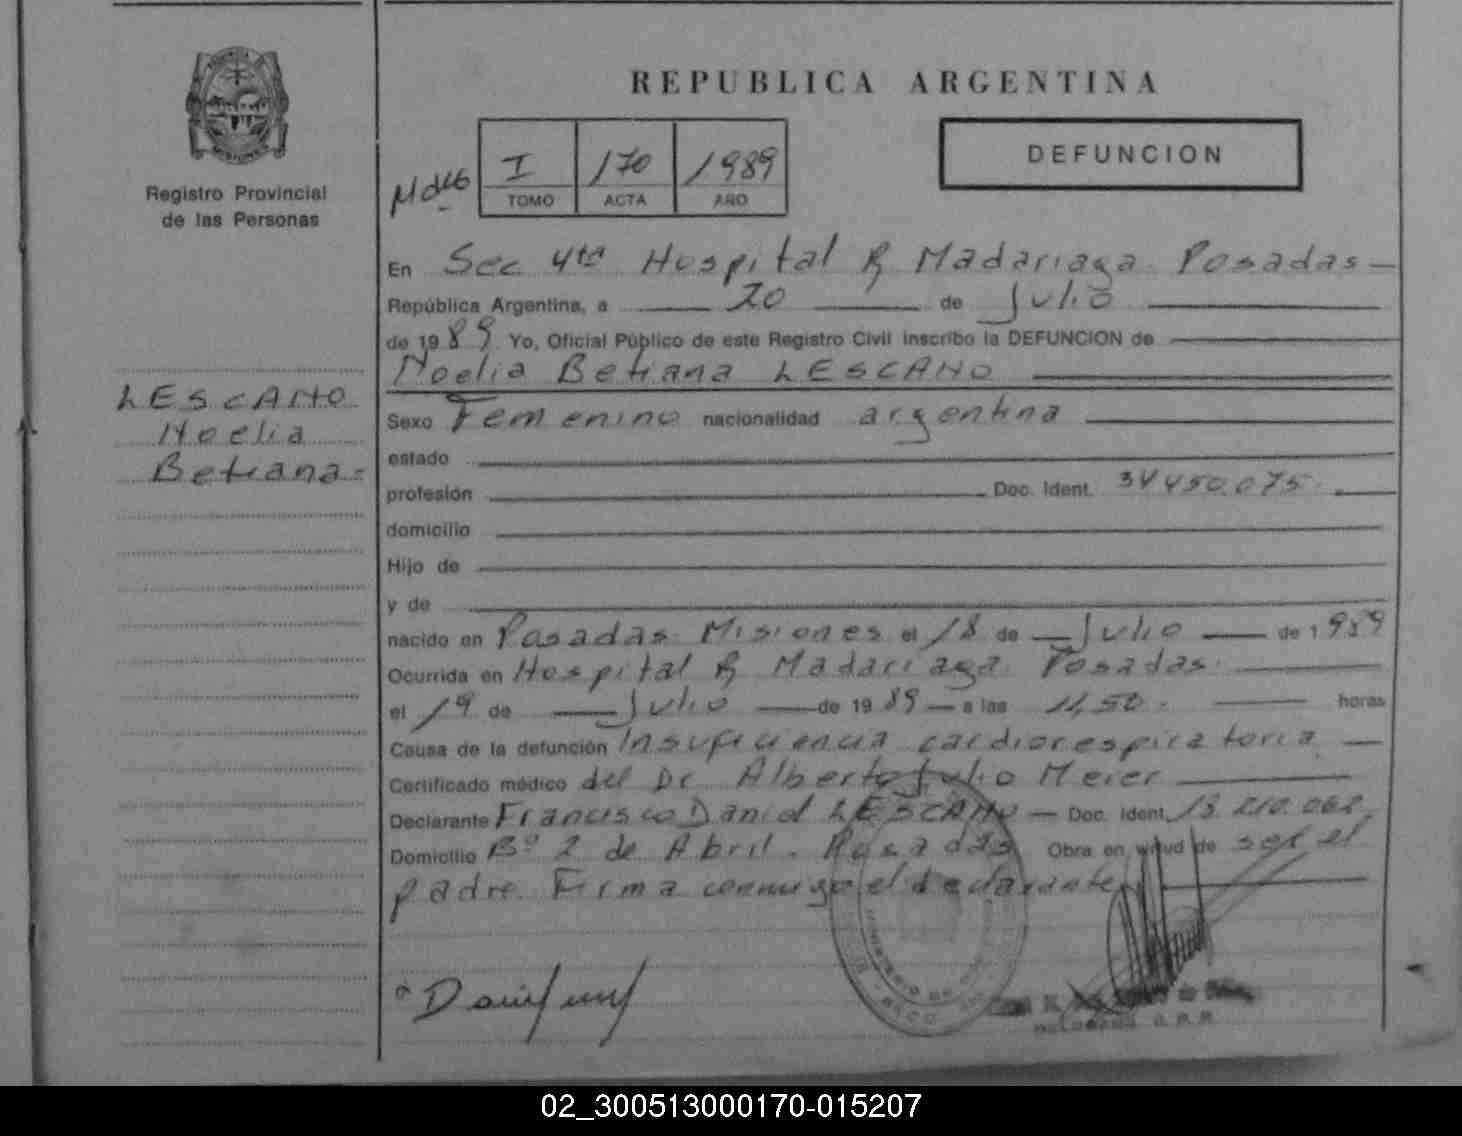 REPUBLICA ARGENTINA
Registro Provincial
de las Personas
I 170 1989
TOMO ACTA AÑO
DEFUNCION
En Sec 4ta Hospital R Madariaga. Posadas
República Argentina, a 20 de Julio
de 1989 Yo, Oficial Público de este Registro Civil inscribo la DEFUNCION de
Noelia Betiana LESCANO
LESCANO
Noelia
Betiana
Sexo Femenino nacionalidad argentina
estado
profesión Doc. Ident. 34.450.075
domicilio
Hijo de
y de
nacido en Posadas Misiones el 18 de Julio de 1989
Ocurrida en Hospital R Madariaga Posadas.
el 19 de Julio de 1989 a las 11,50 horas
Causa de la defunción Insuficiencia cardiorespiratoria
Certificado médico del Dr Alberto Julio Meier
Declarante Francisco Daniel LESCANO Doc. Ident. 13.210.062
Domicilio Bº 2 de Abril. Posadas Obra en virtud de ser el
padre. Firma conmigo el declarante
02_300513000170-015207